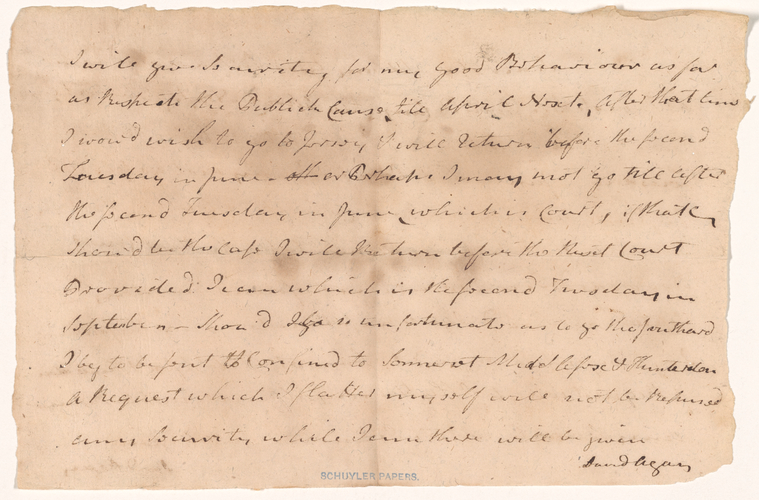 I will give Security for my good Behaviour as far
as Respects the Publick Cause, till April Next, after that time
I wou'd wish to go to Jersey I will Return before the second
Tuesday in June - or Perhaps I may not go till after
the second Tuesday in June which is Court, if that
Shou'd be the Case I will Return before the Next Court
Provided I can which is the second Tuesday in
September - Shou'd I be so unfortunate as to go
I beg to be sent & Confined to Somerset Middlesex & Hunterdon
a Request which I flatter myself will not be Refused
any Security while I am there will be given
David
SCHUYLER PAPERS.